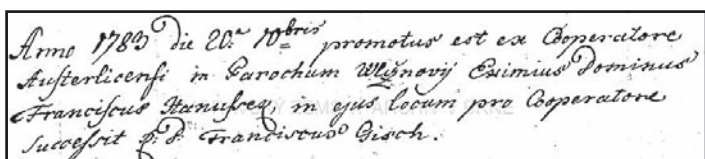 Anno 1783 die 20.ª 10bris promotus est ex Cooperatore
Austerlicensi in Parochum Eximius Dominus
Franciscus Hanusseq, in ejus locum pro Cooperatore
Successit p. d. Franciscus Gisch.